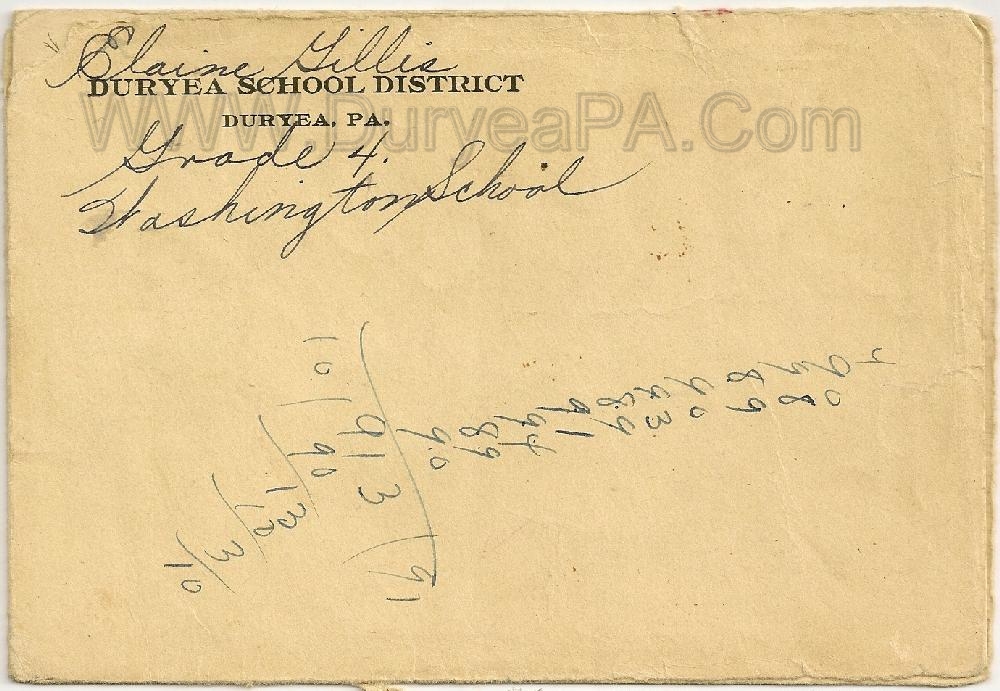 Elaine Gillis
DURYEA SCHOOL DISTRICT
DURYEA, PA.
www.DuryeaPA.Com
Grade 4.
Washington School
10)913(91
90
13
10
3/10